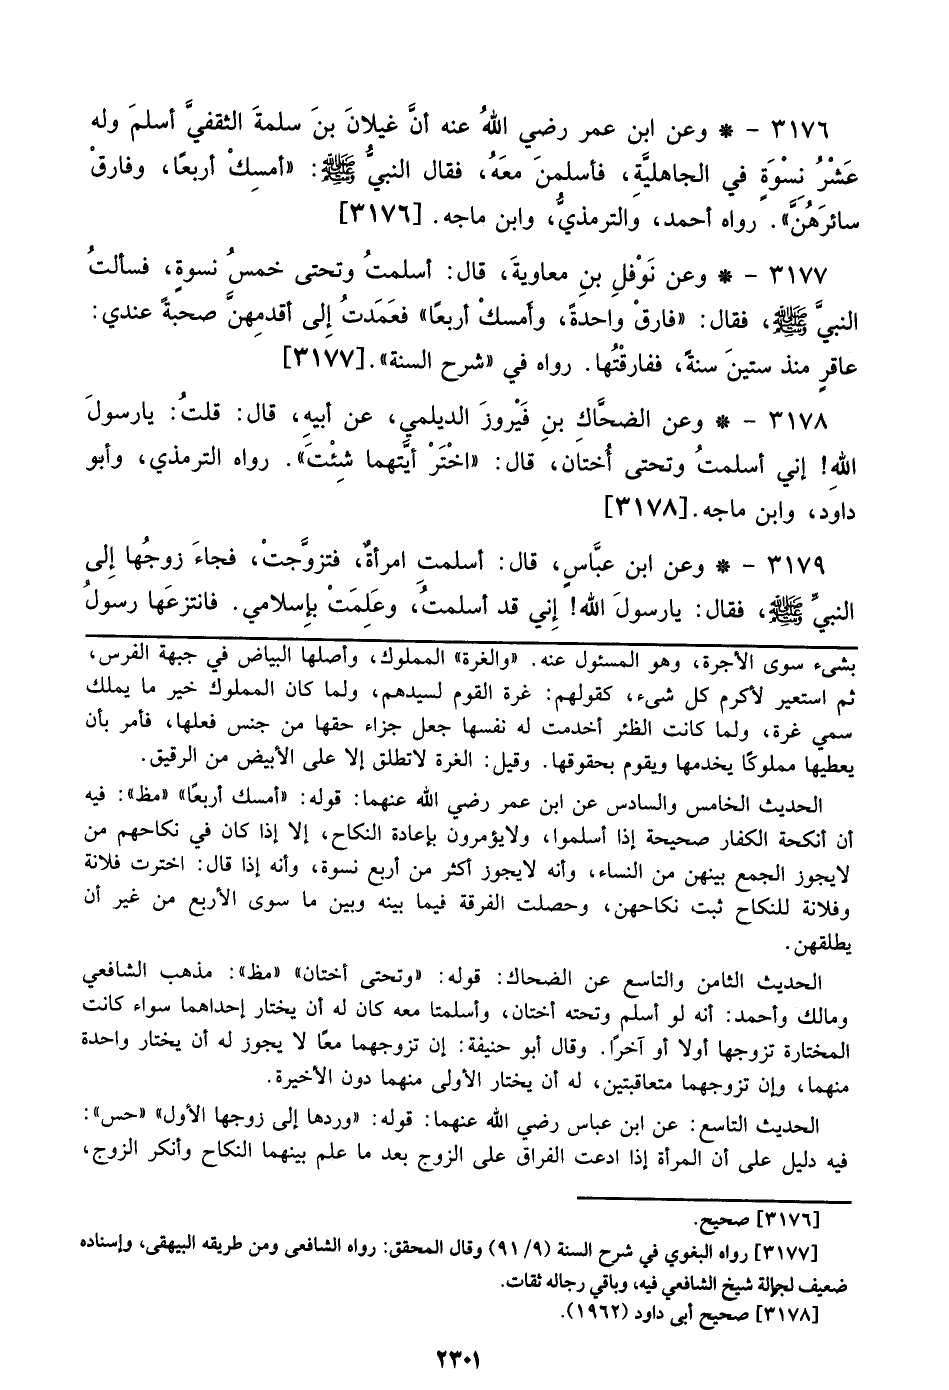 ٣١٧٦ – * وعن ابن عمر رضي اللهُ عنه أنَّ غيلانَ بنَ سلمةَ الثقفيَّ أسلمَ وله
عَشْرُ نِسْوَةٍ في الجاهليَّةِ، فأسلمنَ معَهُ، فقال النبيُّ ﷺ: «أمسِكْ أربعًا، وفارقْ
سائرَهُنَّ». رواه أحمد، والترمذيُّ، وابن ماجه. [٣١٧٦]
٣١٧٧ – * وعن نَوْفلِ بنِ معاويةَ، قال: أسلمتُ وتحتى خمسُ نسوةٍ، فسألتُ
النبيَّ ﷺ، فقال: «فارقْ واحدةً، وأَمسكْ أربعًا» فعَمَدتُ إلى أقدمِهنَّ صحبةً عندي:
عاقرٍ منذ ستينَ سنةً، ففارقْتُها. رواه في «شرح السنة».[٣١٧٧]
٣١٧٨ – * وعن الضحَّاكِ بنِ فَيْروزَ الديلمي، عن أبيهِ، قال: قلتُ: يارسولَ
اللهِ! إني أسلمتُ وتحتى أُختان، قال: «اخْتَرْ أيَّتهما شِئْتَ». رواه الترمذي، وأبو
داود، وابن ماجه.[٣١٧٨]
٣١٧٩ – * وعن ابن عبَّاسٍ، قال: أسلمتِ امرأةٌ، فتزوَّجتْ، فجاءَ زوجُها إلى
النبيِّ ﷺ، فقال: يارسولَ الله! إني قد أسلمتُ، وعَلِمَتْ بإسلامي. فانتزعَها رسولُ
بشىء سوى الأجرة، وهو المسئول عنه. «والغرة» المملوك، وأصلها البياض في جبهة الفرس،
ثم استعير لأكرم كل شىء، كقولهم: غرة القوم لسيدهم، ولما كان المملوك خير ما يملك
سمي غرة، ولما كانت الظئر أخدمت له نفسها جعل جزاء حقها من جنس فعلها، فأمر بأن
يعطيها مملوكًا يخدمها ويقوم بحقوقها. وقيل: الغرة لاتطلق إلا على الأبيض من الرقيق.
الحديث الخامس والسادس عن ابن عمر رضي الله عنهما: قوله: «أمسك أربعًا» «مظ»: فيه
أن أنكحة الكفار صحيحة إذا أسلموا، ولايؤمرون بإعادة النكاح، إلا إذا كان في نكاحهم من
لايجوز الجمع بينهن من النساء، وأنه لايجوز أكثر من أربع نسوة، وأنه إذا قال: اخترت فلانة
وفلانة للنكاح ثبت نكاحهن، وحصلت الفرقة فيما بينه وبين ما سوى الأربع من غير أن
يطلقهن.
الحديث الثامن والتاسع عن الضحاك: قوله: «وتحتى أختان» «مظ»: مذهب الشافعي
ومالك وأحمد: أنه لو أسلم وتحته أختان، وأسلمتا معه كان له أن يختار إحداهما سواء كانت
المختارة تزوجها أولا أو آخرًا. وقال أبو حنيفة: إن تزوجهما معًا لا يجوز له أن يختار واحدة
منهما، وإن تزوجهما متعاقبتين، له أن يختار الأولى منهما دون الأخيرة.
الحديث التاسع: عن ابن عباس رضي الله عنهما: قوله: «وردها إلى زوجها الأول» «حس»:
فيه دليل على أن المرأة إذا ادعت الفراق على الزوج بعد ما علم بينهما النكاح وأنكر الزوج،
[٣١٧٦] صحيح.
[٣١٧٧] رواه البغوي في شرح السنة (٩/ ٩١) وقال المحقق: رواه الشافعى ومن طريقه البيهقى، وإسناده
ضعيف لجهالة شيخ الشافعي فيه، وباقي رجاله ثقات.
[٣١٧٨] صحيح أبى داود (١٩٦٢).
٢٣٠١